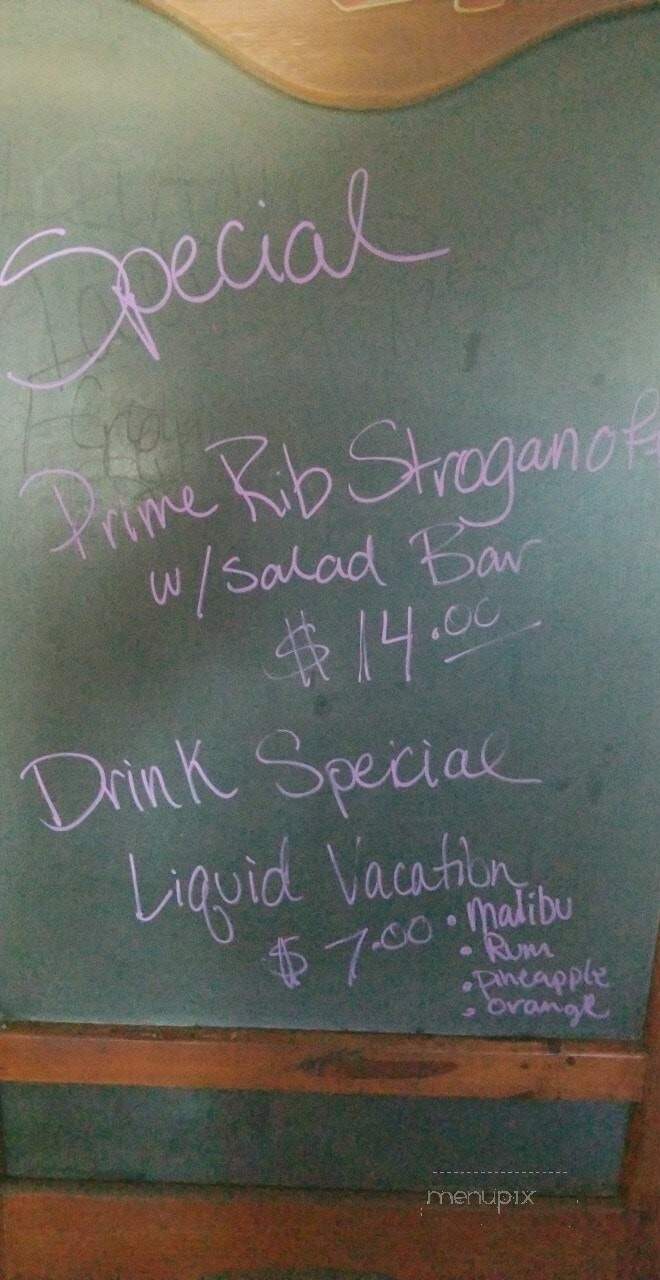 Special
Prime Rib Stroganoff
w/salad Bar
$14.00
Drink Special
Liquid Vacation
$7.00
• Malibu
• Rum
• pineapple
• orange
menupix